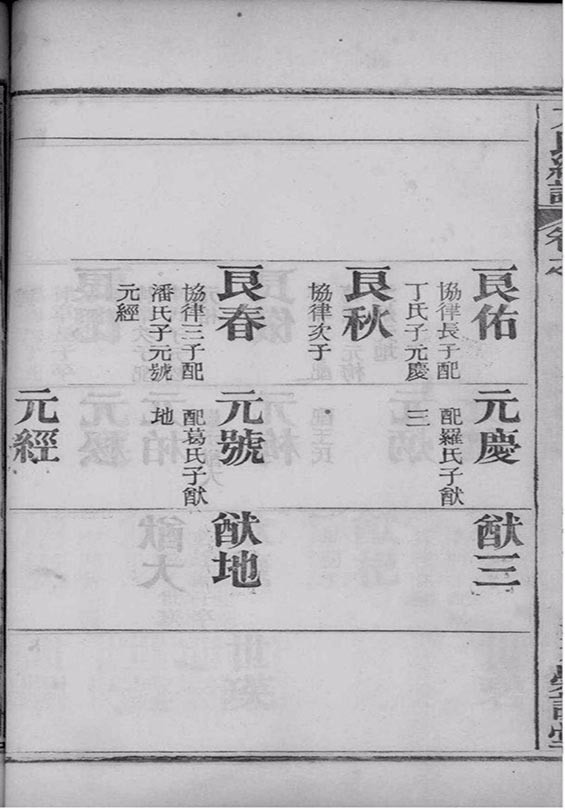 卷之
良佑
協律長子配
丁氏子元慶
元慶
配羅氏子猷
三
猷三
良秋
協律次子
良春
協律三子配
潘氏子元號
元經
元號
配葛氏子猷
地
猷地
元經